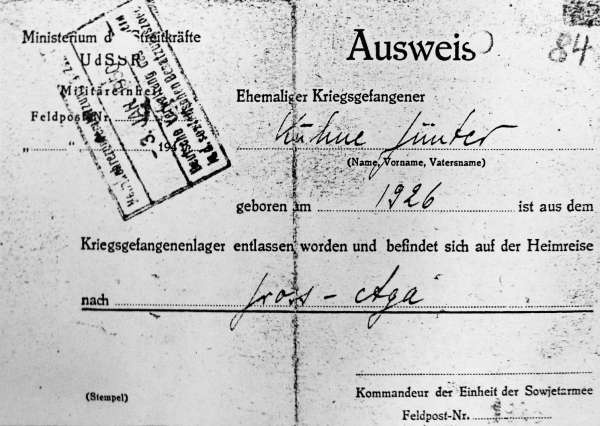 Ministerium d Streitkräfte
UdSSR
Militäreinheit
Feldpost-Nr.
„ “ 194
3. JAN. 1950
Ausweis
84
Ehemaliger Kriegsgefangener
Kühne Günter
(Name, Vorname, Vatersname)
geboren am 1926 ist aus dem
Kriegsgefangenenlager entlassen worden und befindet sich auf der Heimreise
nach Gross - Aga
(Stempel)
Kommandeur der Einheit der Sowjetarmee
Feldpost-Nr.